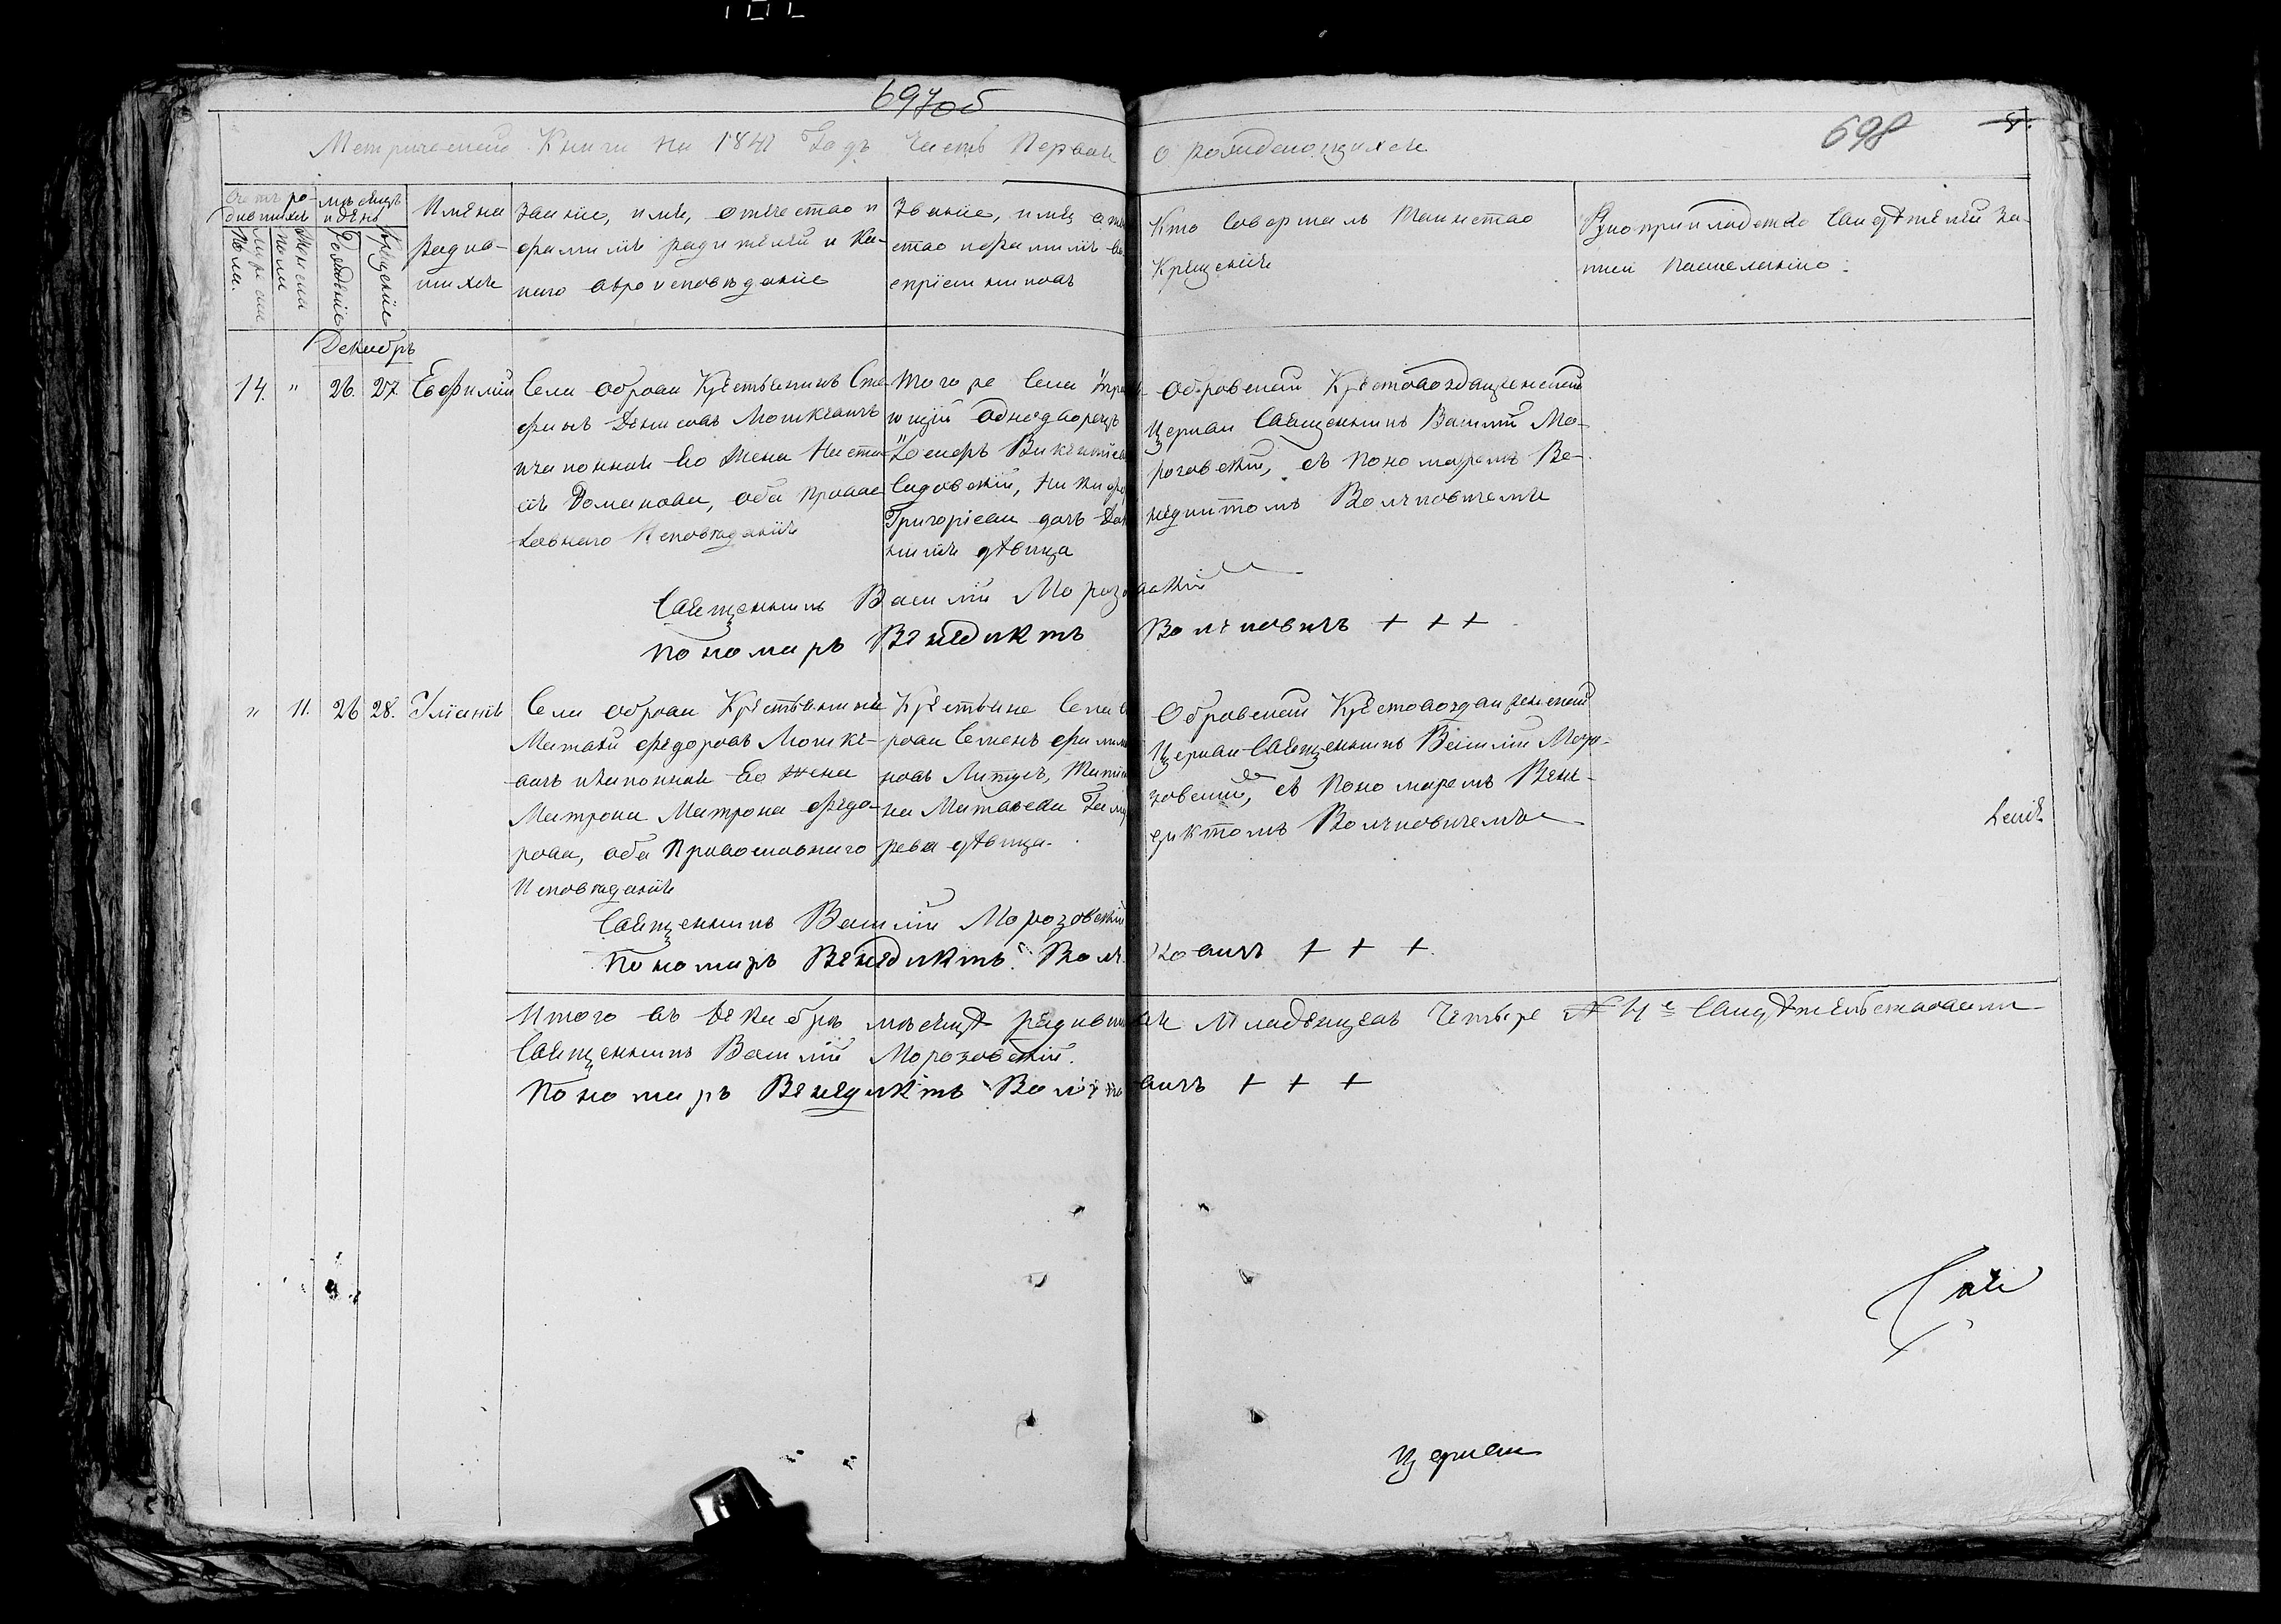 697об
698
Метрической Книги на 184 Годъ Часть Первая о рождающихся
Счетъ ро-
дившихся
Мужеска
Пола.
Женска
Пола
Мѣсяцъ
и день
Рожденіе
Крещеніе
Имена
родив-
шихся
Званіе, имя, отчество и
фамилія родителей и ка-
кого вѣроисповѣданіе
Званіе, имя отче
ство и фамилія во
спріемниковъ
Кто совершалъ Таинство
Крещенія
Рукоприкладство Свидѣтелей за-
писи по желанію.
Декабрь
14. " 26. 27. Евфимій
Села Оброва Крестьянинъ Сте
фанъ Денисовъ Мошкевичъ
и законная Его Жена Наста
сія Романова, оба Правос
лавнаго Исповѣданія
Того же Села
ющій однодворецъ
Іосифъ Викентіев
Садовскій,
Григоріева дочь
дѣвица
Обровской Крестовоздвиженской
Церкви Священникъ Василій Мо-
розовскій, съ Пономаремъ Ве-
недиктомъ Волчковичемъ
Священникъ Василій Морозовскій
Пономарь Венедиктъ Волчковичъ + + +
" 11. 26 28. Іуліанія
Села Оброва Крестьянинъ
Матвѣй Федоровъ Мошке-
вичъ и законная Его жена
Матрона Матрона Федо-
рова, оба Православнаго
Исповѣданія
Крестьяне Села Об
рова Семенъ Филимо
новъ Литушъ, Татія
на Матвѣева
рева дѣвица.
Обровской Крестовоздвиженской
Церкви Священникъ Василій Моро-
зовскій, съ Пономаремъ Вене-
диктомъ Волчковичемъ
Священникъ Василій Морозовскій
Пономарь Венедиктъ Волчковичъ + + +.
Итого въ Декабрѣ мѣсяцѣ родивших младенцевъ Четыре № 4е Свидѣтельствовали
Священникъ Василій Морозовскій.
Пономарь Венедиктъ Волчковичъ + + +
Церкви